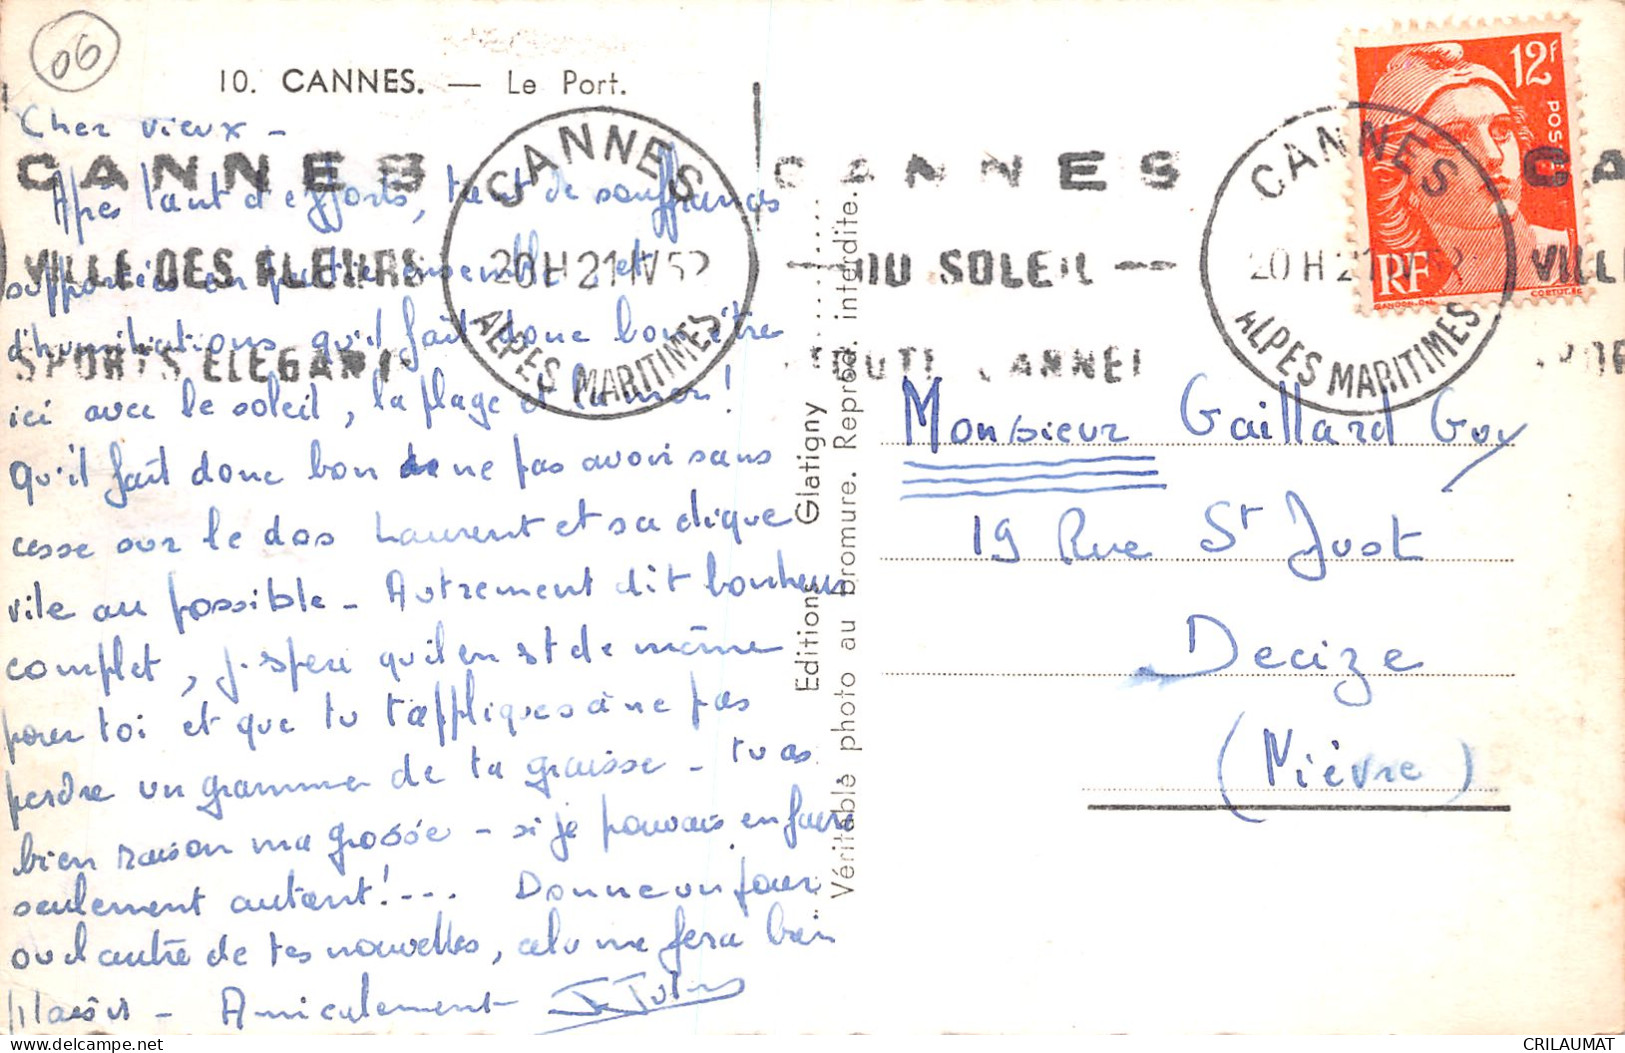 06
10. CANNES. — Le Port.
Cher vieux -
Après tant d'efforts, tant de souffrances
supportées en ensemble et
d'humiliations qu'il fait donc bon être
ici avec le soleil, la plage et la mer!
Qu'il fait donc bon de ne pas avoir sans
cesse sur le dos Laurent et sa clique
vile au possible - Autrement dit bonheur
complet, j'espère qu'il en est de même
pour toi et que tu t'appliques à ne pas
perdre un gramme de ta graisse - tu as
bien raison ma grosse - si je pouvais en faire
seulement autant!... Donne un jour
ou l'autre de tes nouvelles, cela me fera bien
plaisir - Amicalement
CANNES
VILLE DES FLEURS
SPORTS ELEGANCE
CANNES
20H 21 IV 52
ALPES MARITIMES
CANNES
DU SOLEIL
TOUTE L'ANNEE
CANNES
20H 21 IV 52
ALPES MARITIMES
CA
VILL
SPOR
12F
POSTES
RF
GANDON.DEL
CORTOT.SC
Editions Glatigny
Véritable photo au bromure. Reprod. interdite.
Monsieur Gaillard Guy
19 Rue St Just
Decize
(Nièvre)
CRILAUMAT